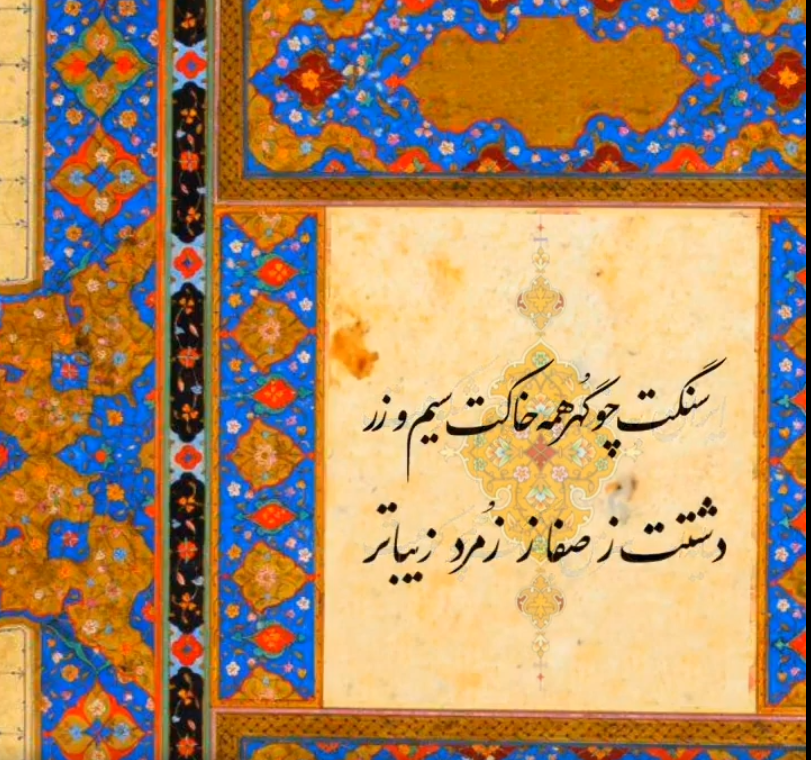 سنگت چو گُهر همه خاکت سیم و زر
دشتت ز صفا ز زُمرد زیباتر